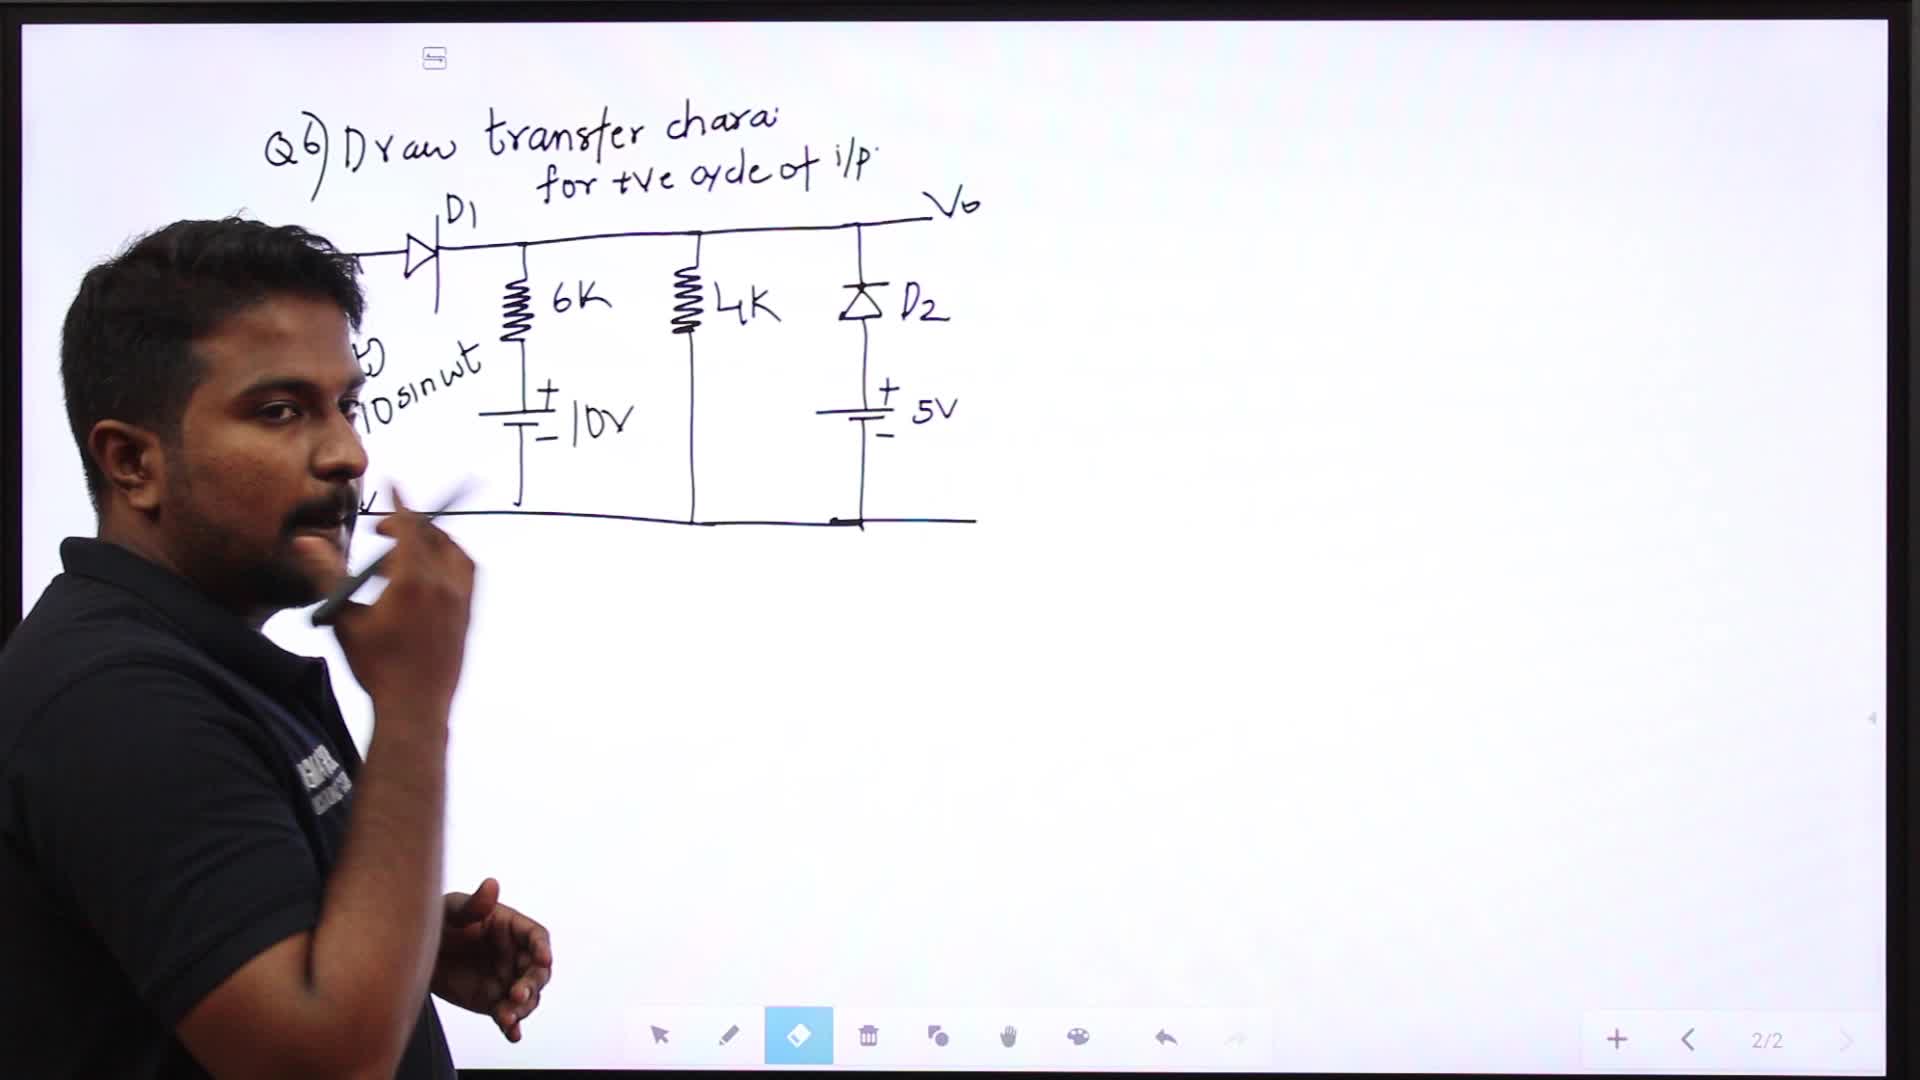 Q6) Draw transfer chara:
for +ve cycle of i/p.
D1
Vo
6K
4K
D2
10 sin wt
+
10V
-
+
5V
-
2/2